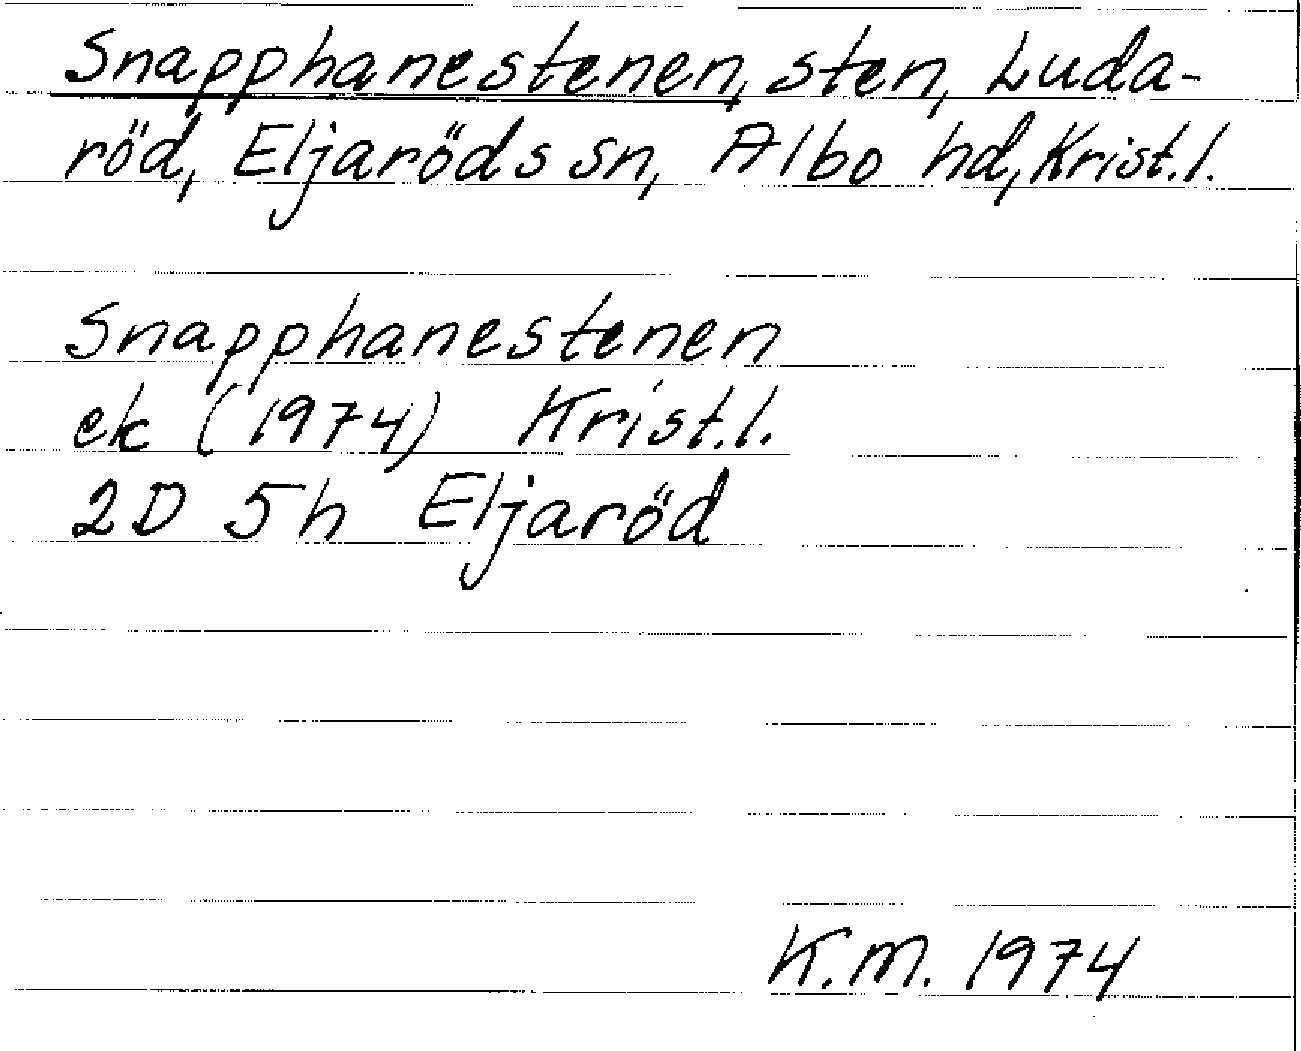 Snapphanestenen, sten, Luda-
röd, Eljaröds sn, Albo hd, Krist.l.
Snapphanestenen
ek (1974) Krist.l.
2D 5h Eljaröd
K.M. 1974